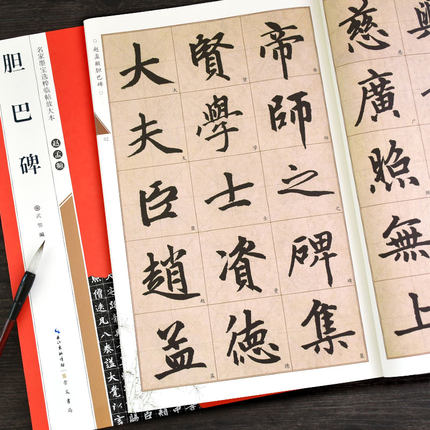 慈廣照無上
帝師之碑集
賢學士資德
大夫臣趙孟
赵孟頫胆巴碑
名家墨宝选粹临帖放大本
胆巴碑
赵孟頫
崇文书局